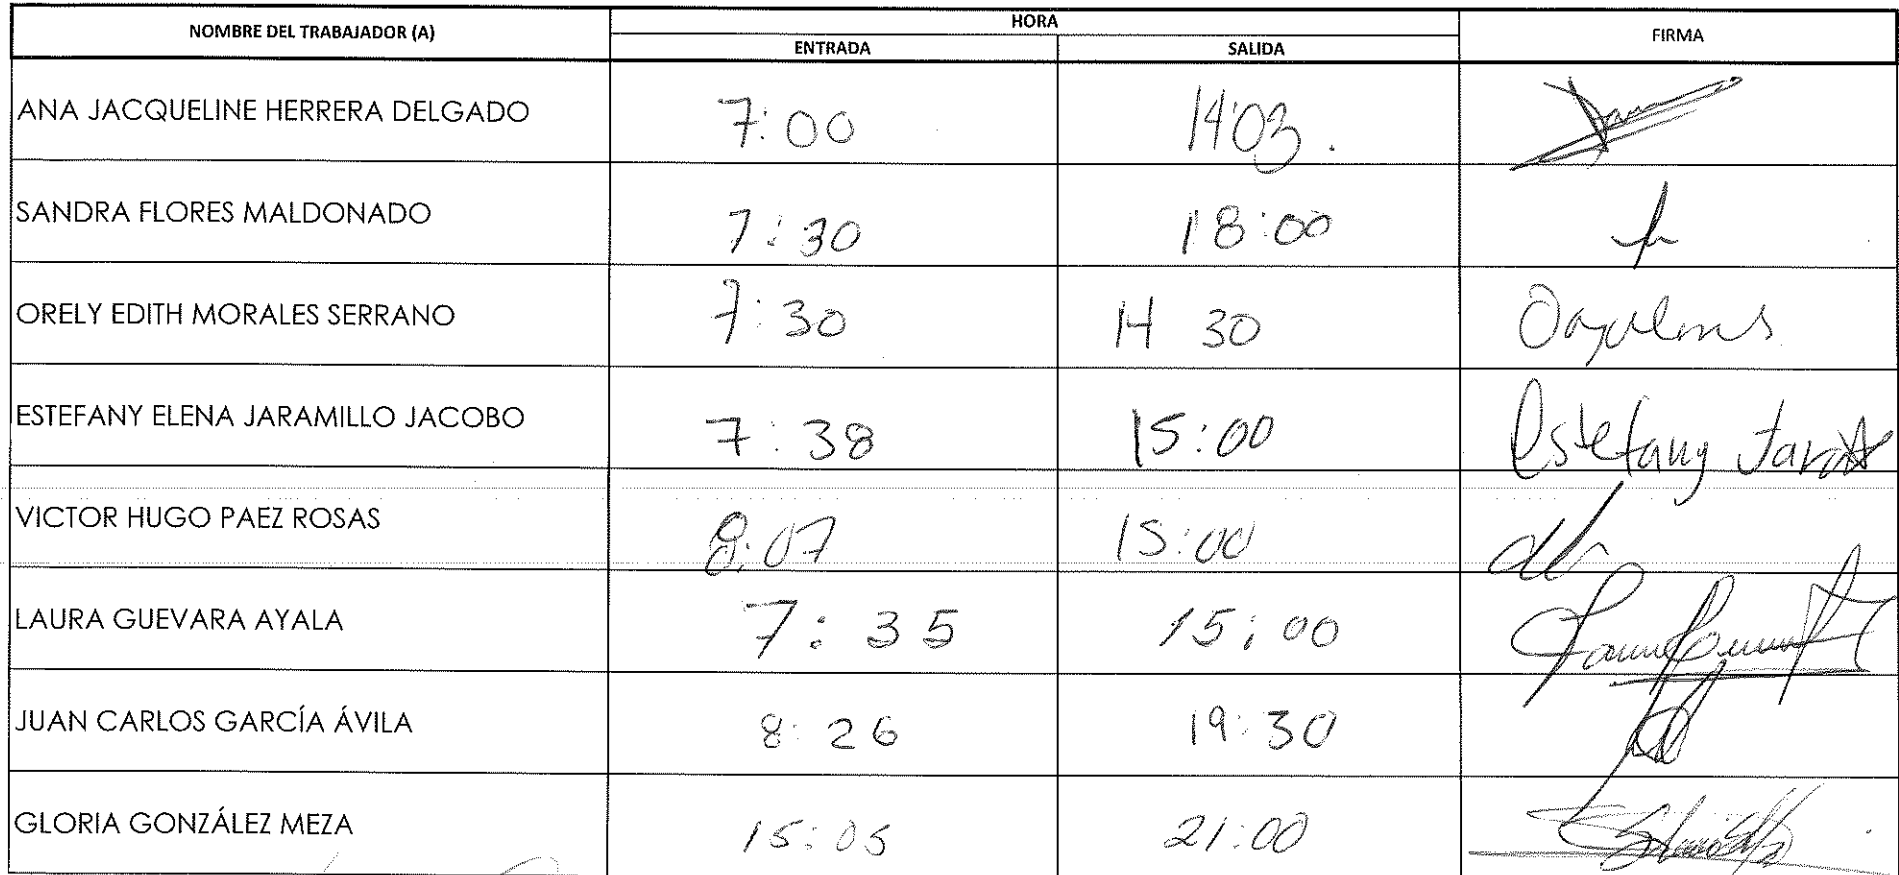 NOMBRE DEL TRABAJADOR (A) HORA FIRMA
ENTRADA SALIDA
ANA JACQUELINE HERRERA DELGADO 7:00 14:03.
SANDRA FLORES MALDONADO 7:30 18:00
ORELY EDITH MORALES SERRANO 7:30 14 30
ESTEFANY ELENA JARAMILLO JACOBO 7:38 15:00 Estefany
VICTOR HUGO PAEZ ROSAS 8:07 15:00
LAURA GUEVARA AYALA 7:35 15:00
JUAN CARLOS GARCÍA ÁVILA 8:26 19:30
GLORIA GONZÁLEZ MEZA 15:05 21:00